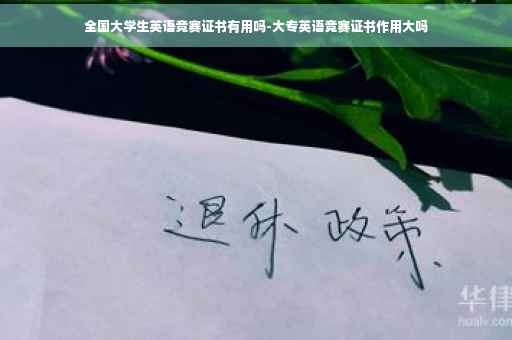 全国大学生英语竞赛证书有用吗-大专英语竞赛证书作用大吗
退休 政策
华律
hualv.com